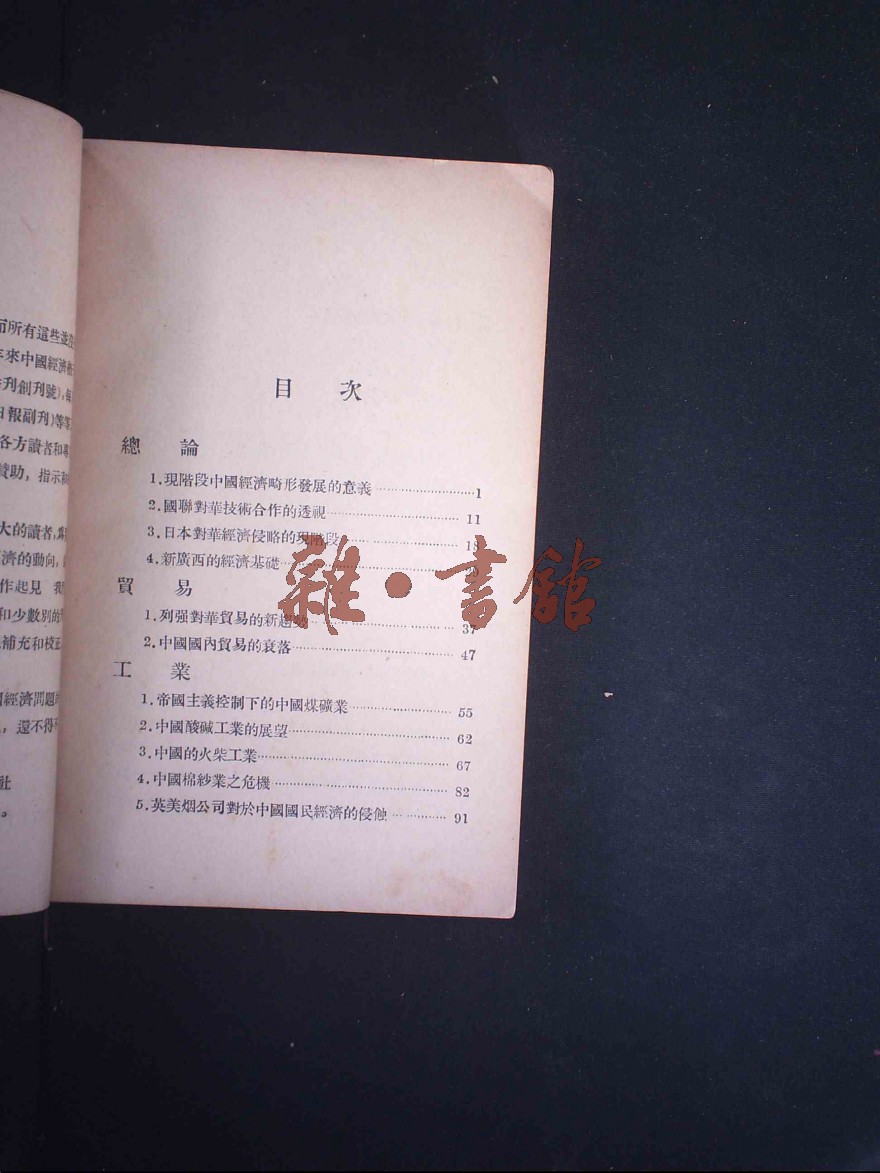 而所有這些並
年來中國經濟
刊創刊號),每
日報副刊)等等
各方讀者和專
贊助，指示和
大的讀者,
經濟的動向,
作起見 我
和少數別的
補充和校正
經濟問題
，還不得不
社
。
目 次
總 論
1.現階段中國經濟畸形發展的意義 1
2.國聯對華技術合作的透視 11
3.日本對華經濟侵略的現階段 18
4.新廣西的經濟基礎
貿 易
1.列强對華貿易的新趨勢 37
2.中國國內貿易的衰落 47
工 業
1.帝國主義控制下的中國煤礦業 55
2.中國酸碱工業的展望 62
3.中國的火柴工業 67
4.中國棉紗業之危機 82
5.英美烟公司對於中國國民經濟的侵蝕 91
雜·書館